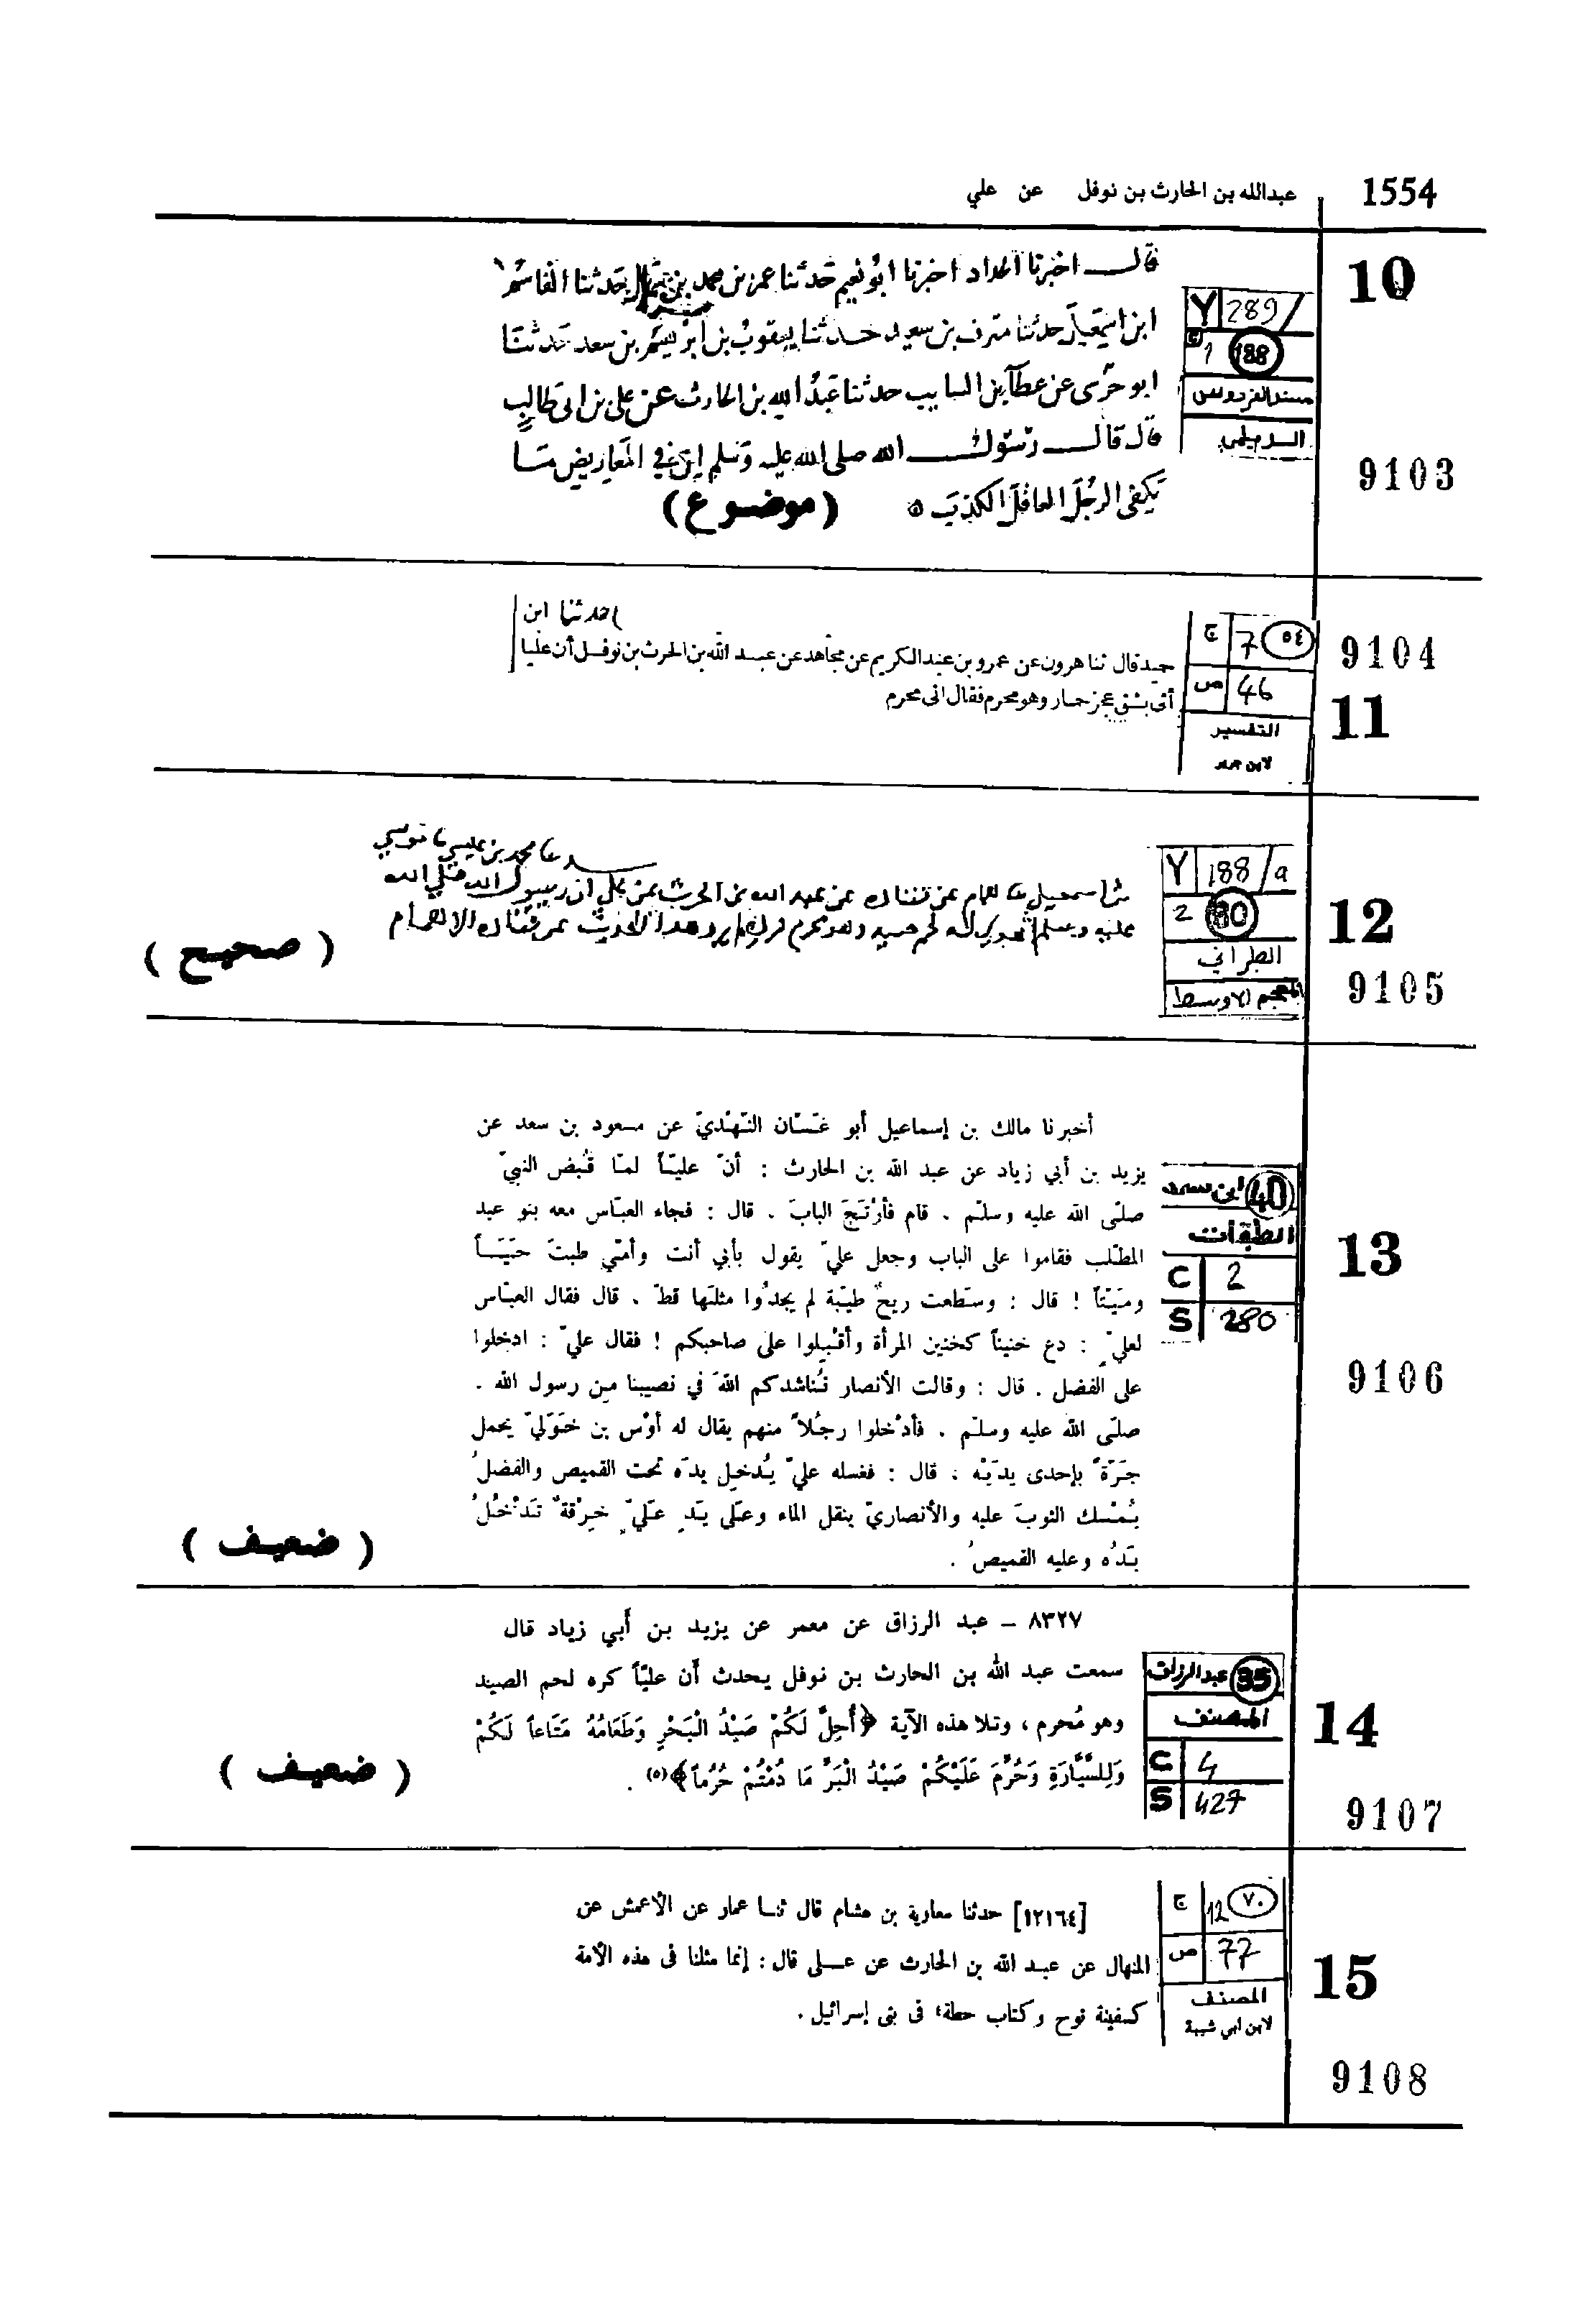 1554
عبدالله بن الحارث بن نوفل عن علي
10
Y 289/
ج 1 188
مسند الفردوس
الديلمي
9103
قال اخبرنا الحداد اخبرنا ابو نعيم حدثنا عمر بن محمد بن حدثنا القاسم
ابن اسمعيل حدثنا بن سعيد حدثنا يعقوب بن بن سعد حدثنا
ابو عن عطآ بن السايب حدثنا عبد الله بن الحارث عن علي بن ابي طالب
قال قال رسول الله صلى الله عليه وسلم ان في المعاريض مَا
يكفي الرجُلَ العاقلَ الكذب ه
(موضوع)
9104
11
ج 7 ٥٤
ص 46
التفسير
لابن جرير
حدثنا ابن
حميد قال ثنا هرون عن عمرو بن عبد الكريم عن مجاهد عن عبد الله بن الحرث بن نوفل أن عليا
أتى بشق عجز حمار وهو محرم فقال انى محرم
12
Y 188/a
2 80
الطبراني
المعجم الاوسط
9105
محمد بن عيسى موسي
اسمعيل همام عن قتاده عن عبد الله بن الحرث عن علي ان رسول الله صلي الله
عليه وسلم اهدي له لحم صيد وهو محرم فرده لم يرو هذا الحديث عن قتاده الا همام
( صحيح )
13
40 ابن سعد
الطبقات
C 2
S 280
9106
أخبرنا مالك بن إسماعيل أبو غَسّان النّهْديّ عن مسعود بن سعد عن
يزيد بن أبي زياد عن عبد الله بن الحارث : أنّ عليّاً لمّا قُبض النبيّ
صلّى الله عليه وسلّم . قام فأرْتَجَ البابَ . قال : فجاء العبّاس معه بنو عبد
المطّلب فقاموا على الباب وجعل عليّ يقول بأبي أنت وأمّي طبتَ حَيّاً
ومَيّتاً ! قال : وسَطعت ريحٌ طيّبة لم يجدُوا مثلَها قطّ . قال فقال العبّاس
لعليّ : دع خنيناً كخنين المرأة وأقْبِلوا على صاحبكم ! فقال عليّ : ادخلوا
على الفضل . قال : وقالت الأنصار نُناشدكم اللهَ في نصيبنا من رسول الله .
صلّى الله عليه وسلّم . فأدْخلوا رجُلاً منهم يقال له أوْس بن خَوَليّ يحمل
جَرّةً بإحدى يدَيْه . قال : فغسله عليّ يُدخِل يدَه تحت القميص والفضلُ
يُمْسك الثوبَ عليه والأنصاريّ ينقل الماء وعلى يَدِ عَليّ خِرْقةٌ تَدْخُلُ
يَدُه وعليه القميصُ .
( ضعيف )
35 عبد الرزاق
المصنف
C 4
S 427
14
9107
٨٣٢٧ – عبد الرزاق عن معمر عن يزيد بن أَبي زياد قال
سمعت عبد الله بن الحارث بن نوفل يحدث أَن عليّاً كره لحم الصيد
وهو مُحرم ، وتلا هذه الآية ﴿أُحِلَّ لَكُمْ صَيْدُ الْبَحْرِ وَطَعَامُهُ مَتَاعاً لَكُمْ
وَلِلسَّيَّارَةِ وَحُرِّمَ عَلَيْكُمْ صَيْدُ الْبَرِّ مَا دُمْتُمْ حُرُماً﴾(٥) .
( ضعيف )
ج 12 ٧٠
ص 77
المصنف
لابن ابي شيبة
15
9108
[١٢١٦٤] حدثنا معاوية بن هشام قال ثنا عمار عن الأعمش عن
المنهال عن عبد الله بن الحارث عن على قال : إنما مثلنا فى هذه الأمة
كسفينة نوح وكتاب حطة٤ فى بنى إسرائيل .